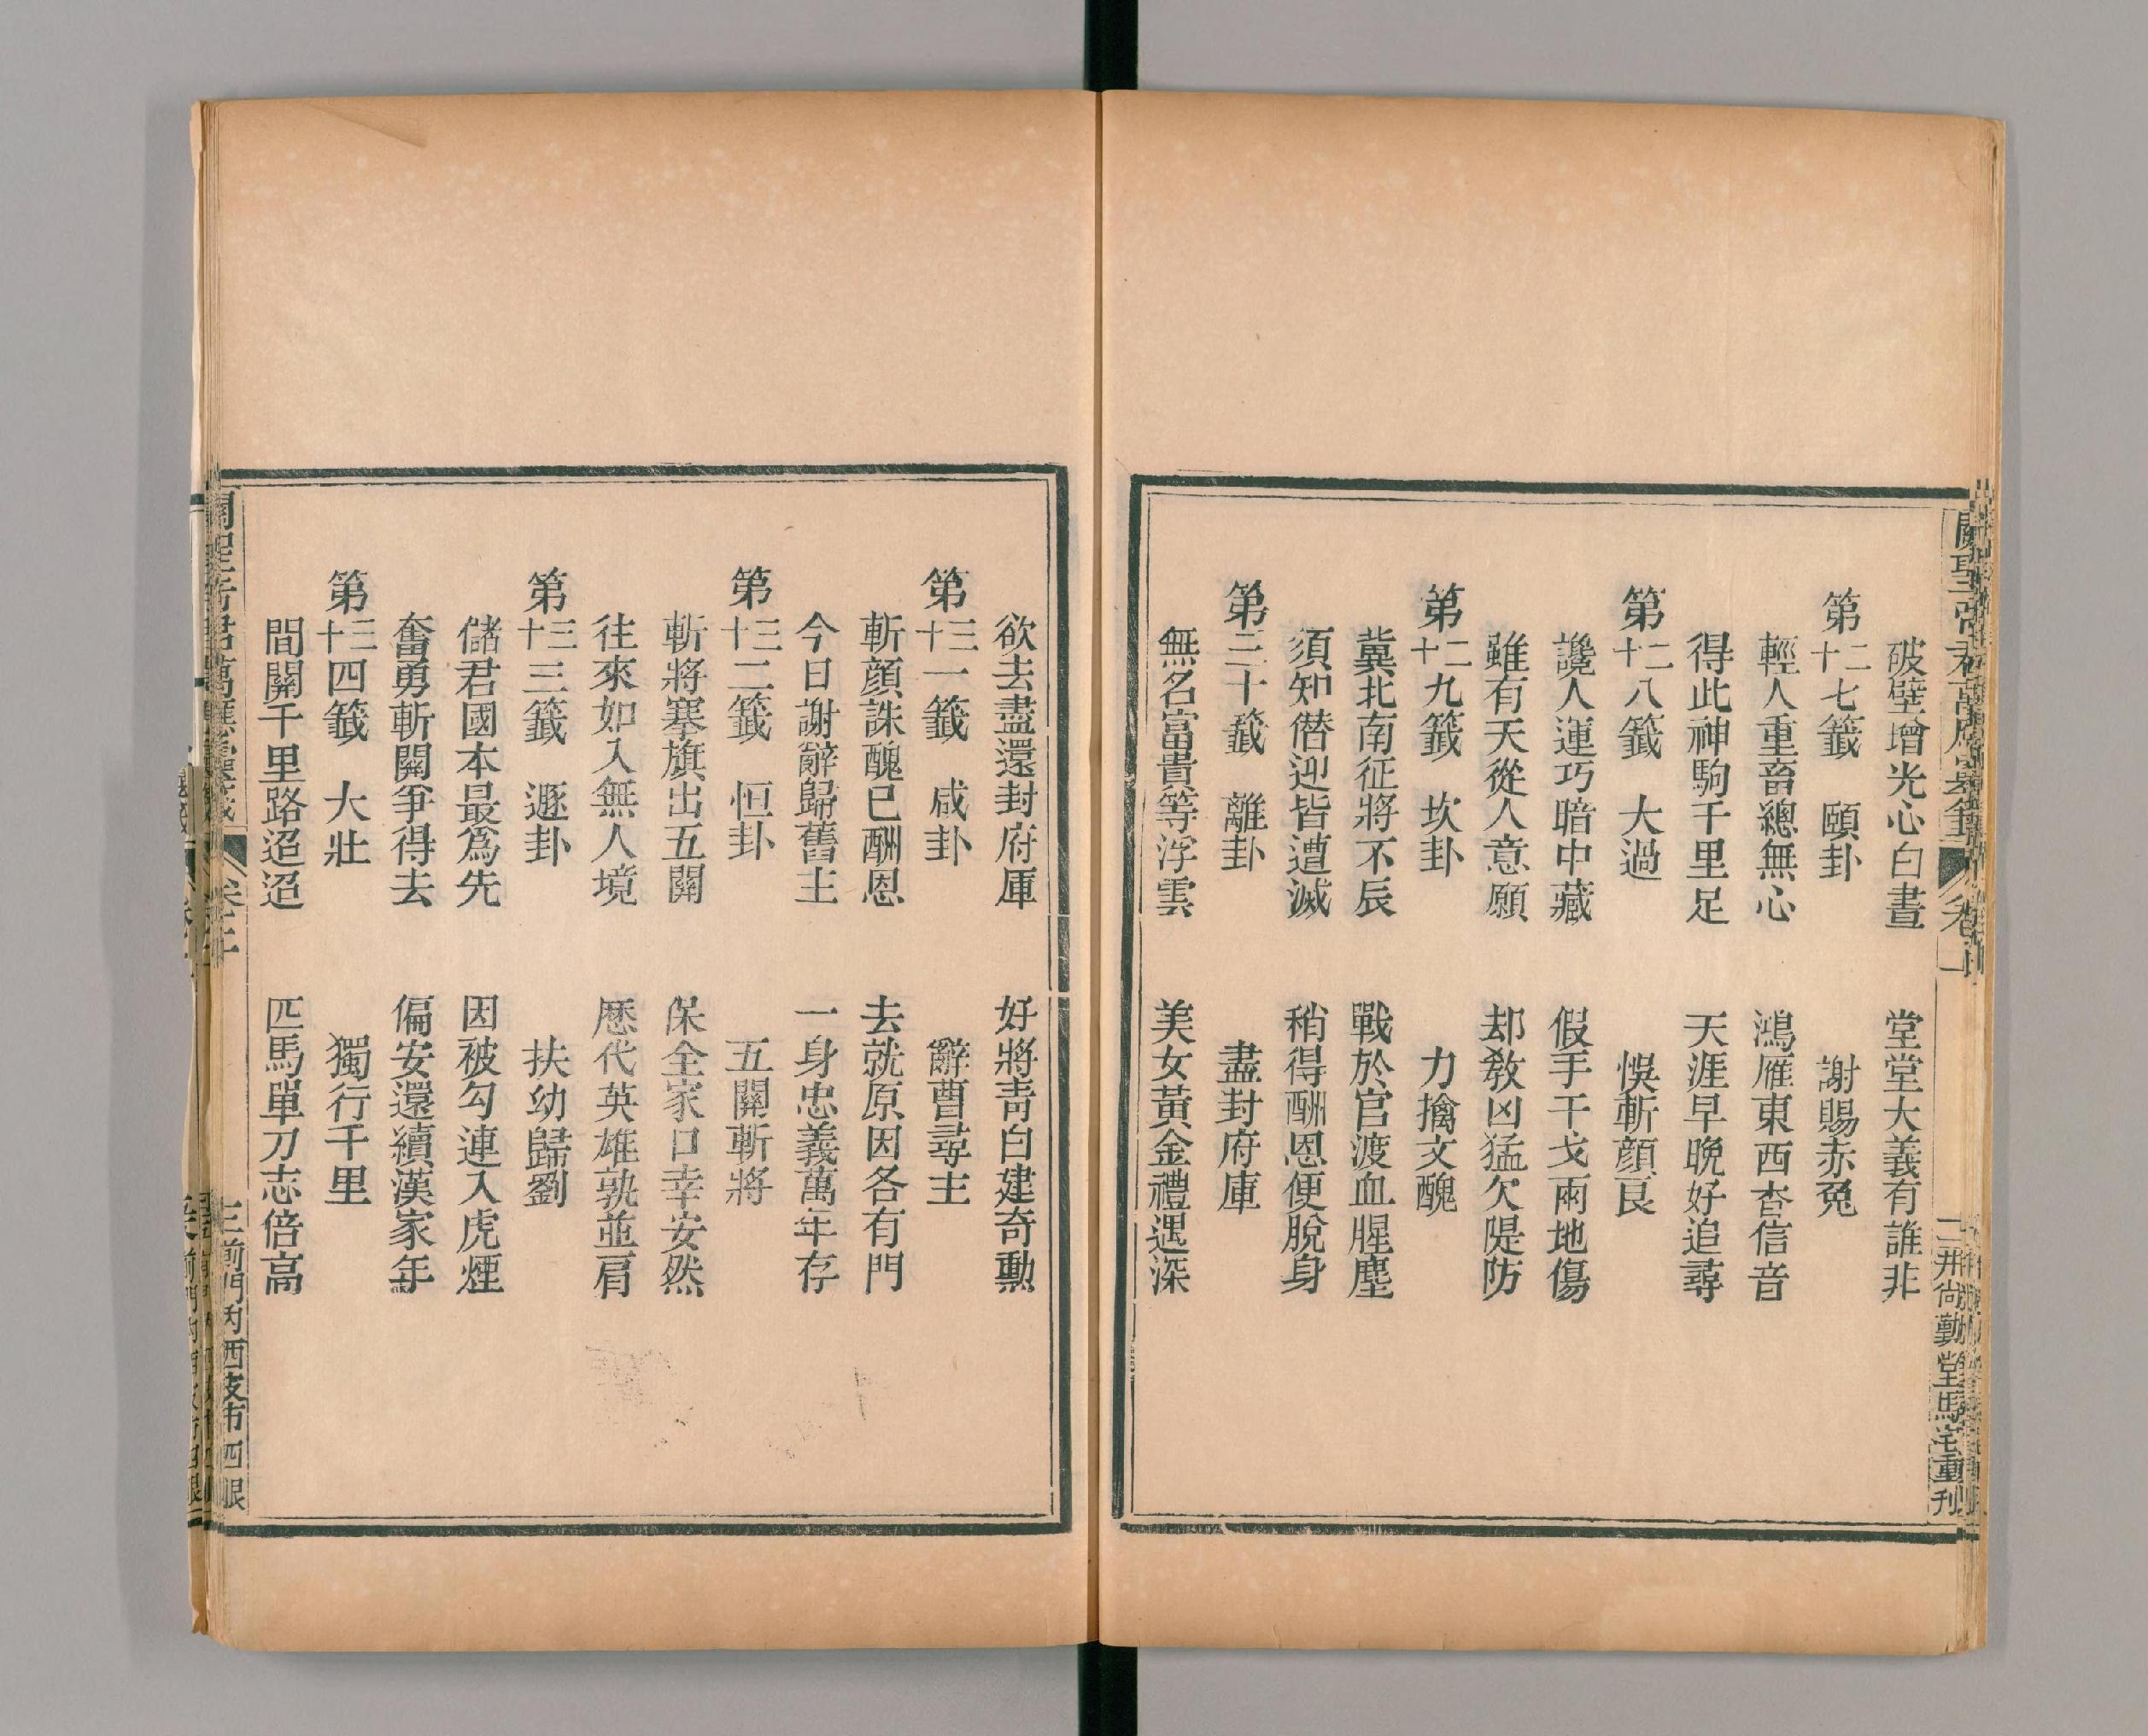 破壁增光心白晝　堂堂大義有誰非
第二十七籤　頤卦　謝賜赤兔
輕人重畜總無心　鴻雁東西杳信音
得此神駒千里足　天涯早晚好追尋
第二十八籤　大過　悞斬顏良
讒人運巧暗中藏　假手干戈兩地傷
雖有天從人意願　却教凶猛欠隄防
第二十九籤　坎卦　力擒文醜
冀北南征將不辰　戰於官渡血腥塵
須知僣迎皆遭滅　稍得酬恩便脫身
第三十籤　離卦　盡封府庫
無名富貴等浮雲　美女黃金禮遇深
欲去盡還封府庫　好將靑白建奇勳
第三十一籤　咸卦　辭曹尋主
斬顏誅醜已酬恩　去就原因各有門
今日謝辭歸舊主　一身忠義萬年存
第三十二籤　恒卦　五關斬將
斬將搴旗出五關　保全家口幸安然
往來如入無人境　歷代英雄孰並肩
第三十三籤　遯卦　扶幼歸劉
儲君國本最爲先　因被勾連入虎煙
奮勇斬關爭得去　偏安還續漢家年
第三十四籤　大壯　獨行千里
間關千里路迢迢　匹馬單刀志倍高
卷二　三　前門內西皮市四眼
井尙勤堂馬宅重刊